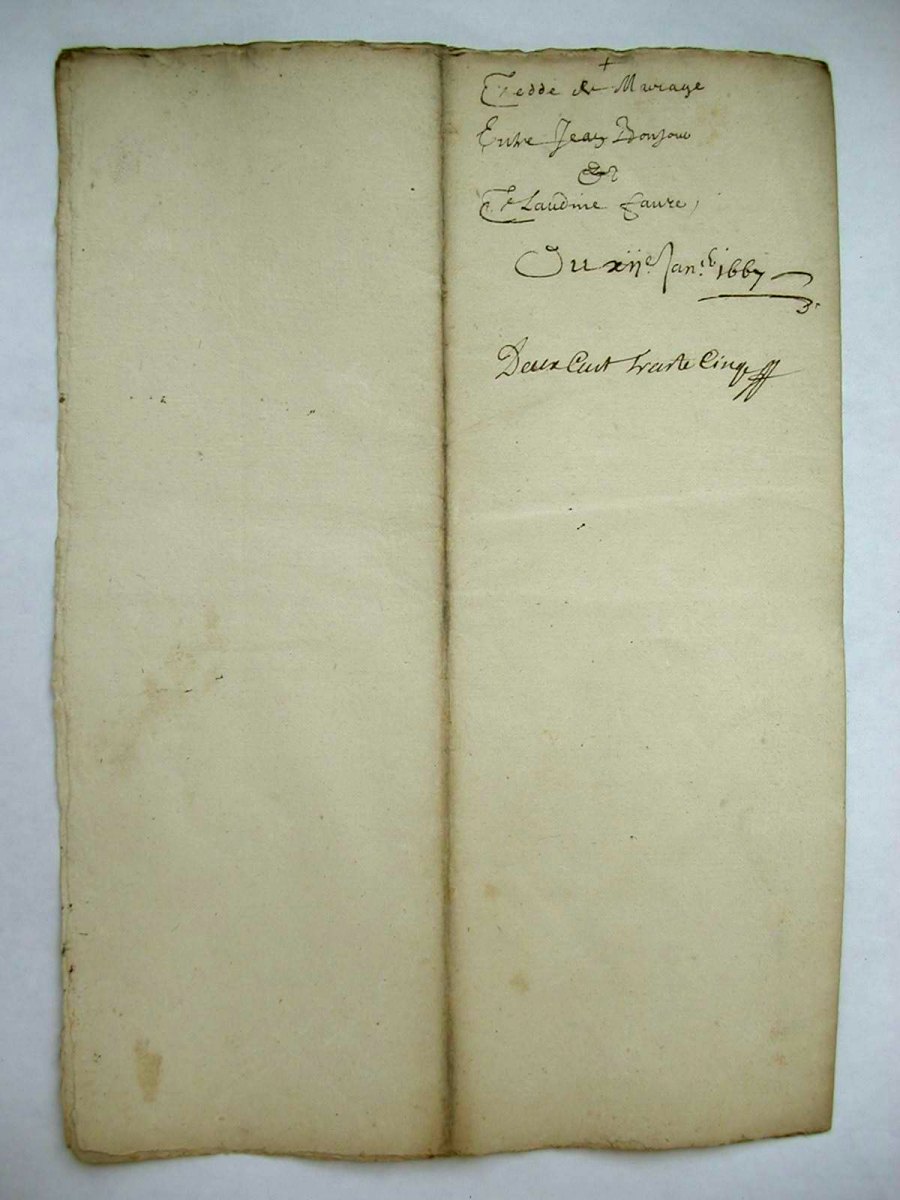 +
Cedde de Mariage
Entre Jean Bonjour
Et
Claudine Faure,
Du xije Janer 1667
Deux Cent trente Cinq